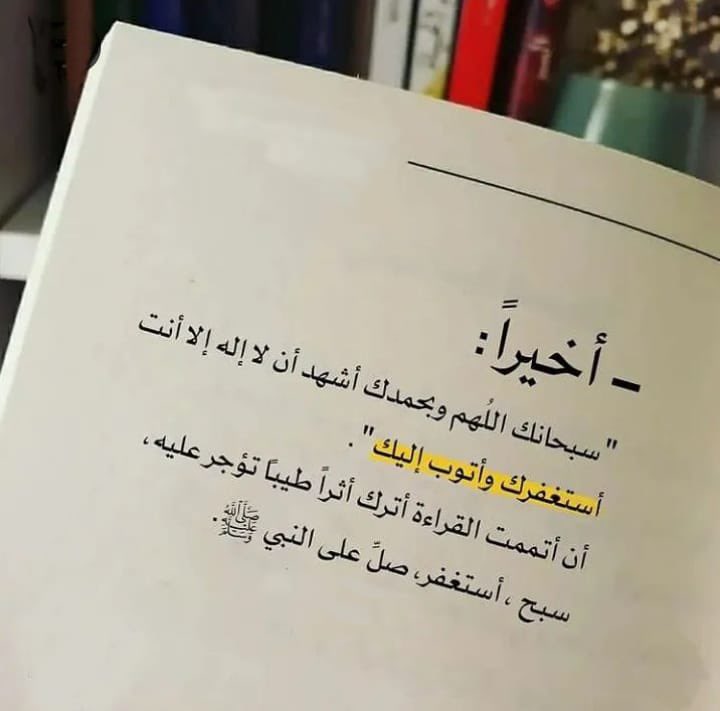 - أخيراً:
"سبحانك اللُهم وبحمدك أشهد أن لا إله إلا أنت
أستغفرك وأتوب إليك" .
أن أتممت القراءة أترك أثراً طيباً تؤجر عليه،
سبح ، أستغفر، صلِّ على النبي ﷺ.